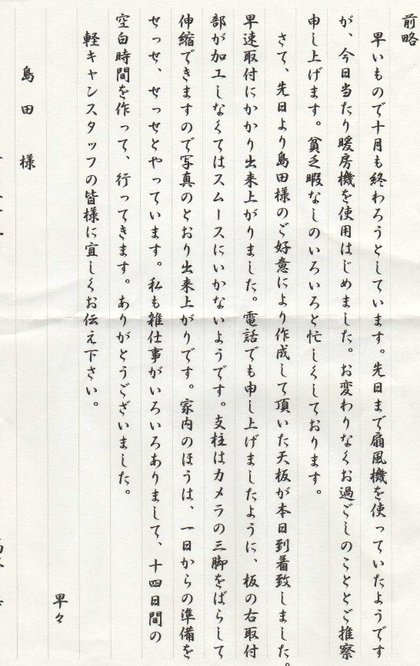 前略
早いもので十月も終わろうとしています。先日まで扇風機を使っていたようです
が、今日当たり暖房機を使用はじめました。お変わりなくお過ごしのこととご推察
申し上げます。貧乏暇なしのいろいろと忙しくしております。
さて、先日より島田様のご好意により作成して頂いた天板が本日到着致しました。
早速取付にかかり出来上がりました。電話でも申し上げましたように、板の右取付
部が加工しなくてはスムースにいかないようです。支柱はカメラの三脚をばらして
伸縮できますので写真のとおり出来上がりです。家内のほうは、一日からの準備を
せっせ、せっせとやっています。私も雑仕事がいろいろありまして、十四日間の
空白時間を作って、行ってきます。ありがとうございました。
軽キャンスタッフの皆様に宜しくお伝え下さい。
早々
島田様